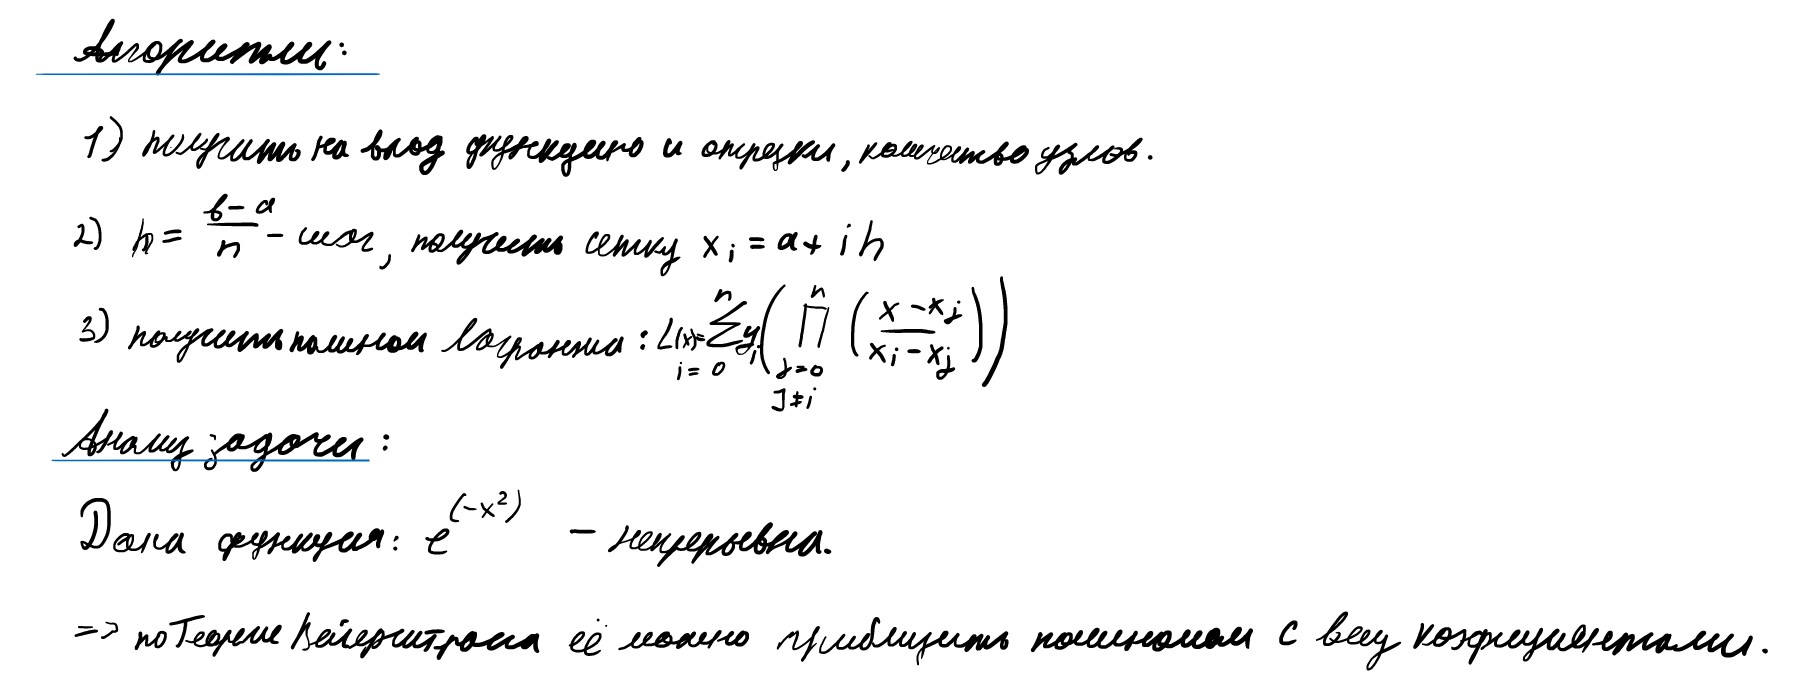 Алгоритм:
1) получить на вход функцию и отрезки, количество узлов.
2) h = \frac{b-a}{n} - шаг, получить сетку x_i = a + i h
3) получить полином Лагранжа: L(x) = \sum_{i=0}^{n} y_i \left( \prod_{j=0, j≠i}^{n} \left( \frac{x - x_j}{x_i - x_j} \right) \right)
Анализ задачи:
Дана функция: e^{(-x^2)} - непрерывна.
=> по Теореме Вейерштраса её можно приблизить полиномом с вещ коэфициентами.